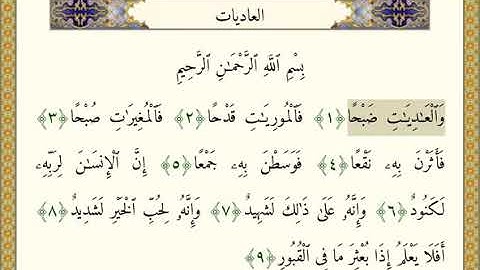 العاديات
بِسْمِ ٱللَّهِ ٱلرَّحْمَـٰنِ ٱلرَّحِيمِ
وَٱلْعَـٰدِيَـٰتِ ضَبْحًا ﴿١﴾ فَٱلْمُورِيَـٰتِ قَدْحًا ﴿٢﴾ فَٱلْمُغِيرَٰتِ صُبْحًا ﴿٣﴾
فَأَثَرْنَ بِهِۦ نَقْعًا ﴿٤﴾ فَوَسَطْنَ بِهِۦ جَمْعًا ﴿٥﴾ إِنَّ ٱلْإِنسَـٰنَ لِرَبِّهِۦ
لَكَنُودٌ ﴿٦﴾ وَإِنَّهُۥ عَلَىٰ ذَٰلِكَ لَشَهِيدٌ ﴿٧﴾ وَإِنَّهُۥ لِحُبِّ ٱلْخَيْرِ لَشَدِيدٌ ﴿٨﴾
أَفَلَا يَعْلَمُ إِذَا بُعْثِرَ مَا فِى ٱلْقُبُورِ ﴿٩﴾